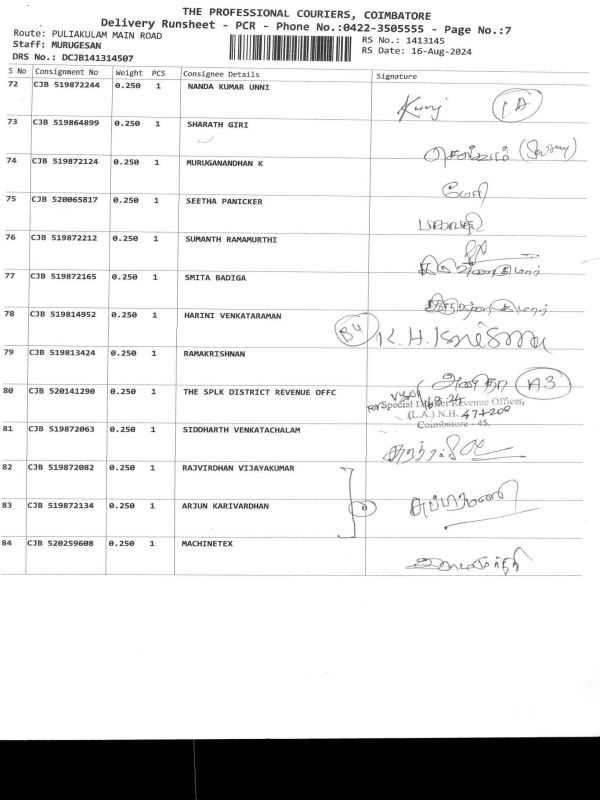 THE PROFESSIONAL COURIERS, COIMBATORE
Delivery Runsheet - PCR - Phone No.:0422-3505555 - Page No.:7
Route: PULIAKULAM MAIN ROAD
RS No.: 1413145
Staff: MURUGESAN
RS Date: 16-Aug-2024
DRS No.: DCJB141314507
S No Consignment No Weight PCS Consignee Details Signature
72 CJB 519872244 0.250 1 NANDA KUMAR UNNI
73 CJB 519864899 0.250 1 SHARATH GIRI
74 CJB 519872124 0.250 1 MURUGANANDHAN K
75 CJB 520065817 0.250 1 SEETHA PANICKER
76 CJB 519872212 0.250 1 SUMANTH RAMAMURTHI
77 CJB 519872165 0.250 1 SMITA BADIGA
78 CJB 519814952 0.250 1 HARINI VENKATARAMAN B4
79 CJB 519813424 0.250 1 RAMAKRISHNAN A3
80 CJB 520141290 0.250 1 THE SPLK DISTRICT REVENUE OFFC
Special District Revenue Officer,
(L.A.) N.H. 47+209
Coimbatore - 45.
81 CJB 519872063 0.250 1 SIDDHARTH VENKATACHALAM
82 CJB 519872082 0.250 1 RAJVIRDHAN VIJAYAKUMAR
83 CJB 519872134 0.250 1 ARJUN KARIVARDHAN
84 CJB 520259608 0.250 1 MACHINETEX